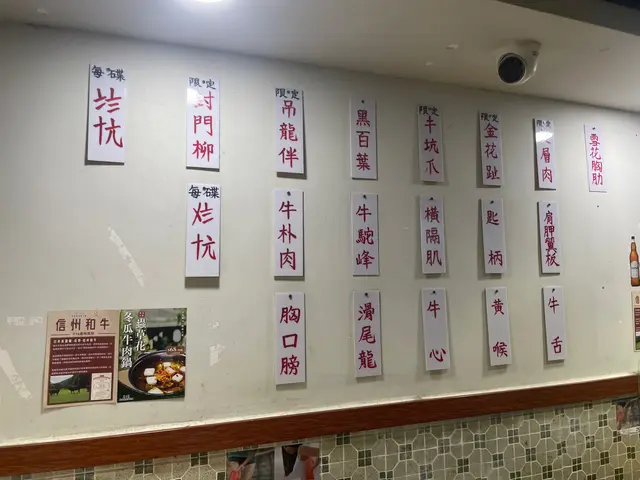 每*碟
限*定
封門柳
限*定
吊龍伴
黑百葉
限*定
牛坑爪
限*定
金花趾
層肉
雪花胸肋
每*碟
牛朴肉
牛駝峰
橫隔肌
匙柄
肩胛翼板
胸口膀
滑尾龍
牛心
黃喉
牛舌
信州和牛
蟲草花
冬瓜牛肉鍋